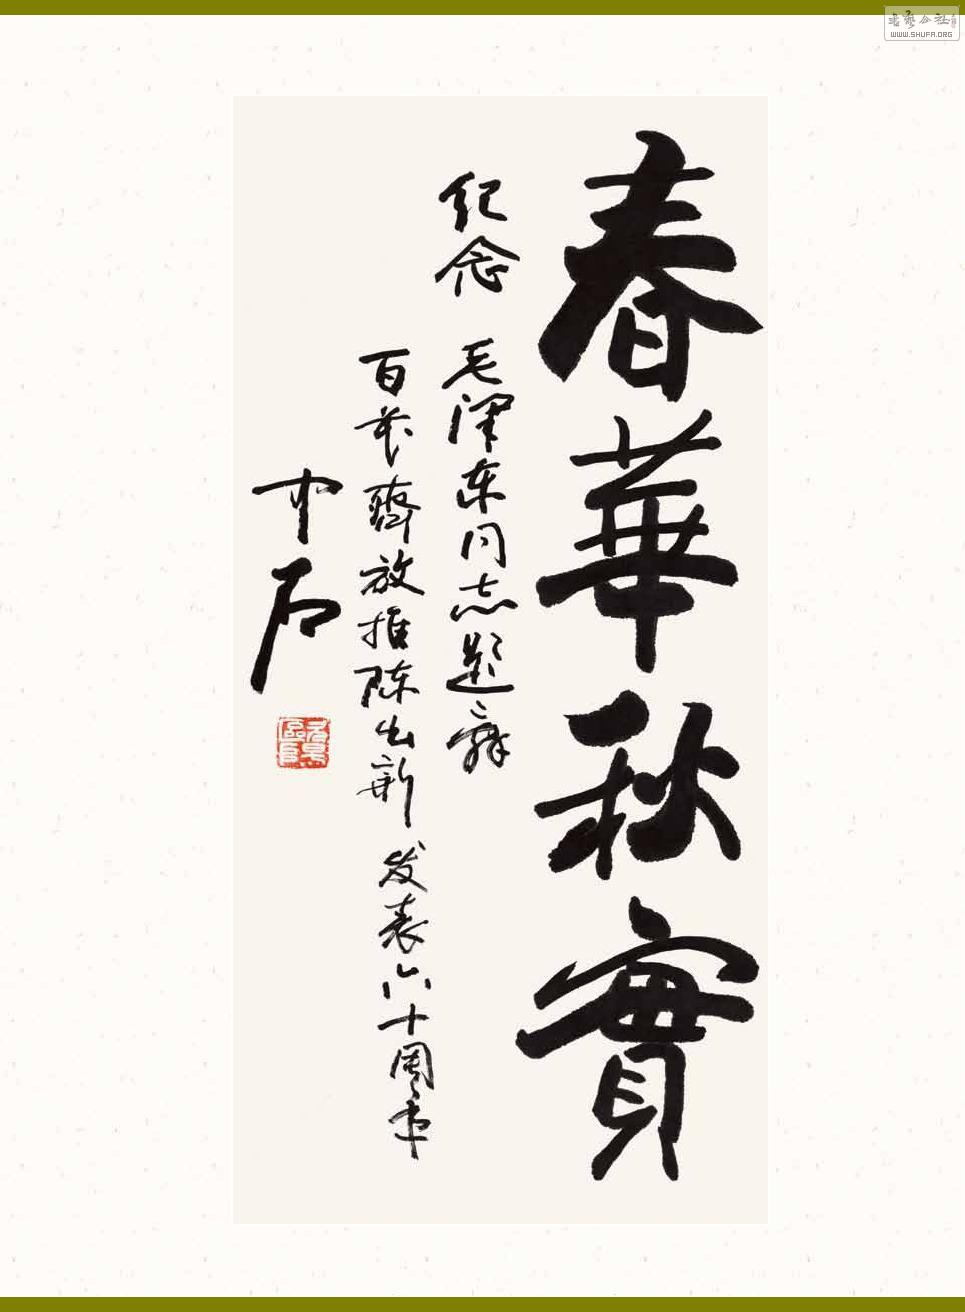 春華秋實
纪念 毛泽东同志题辞
百花齊放推陈出新 发表六十周年
中石
WWW.SHUFA.ORG